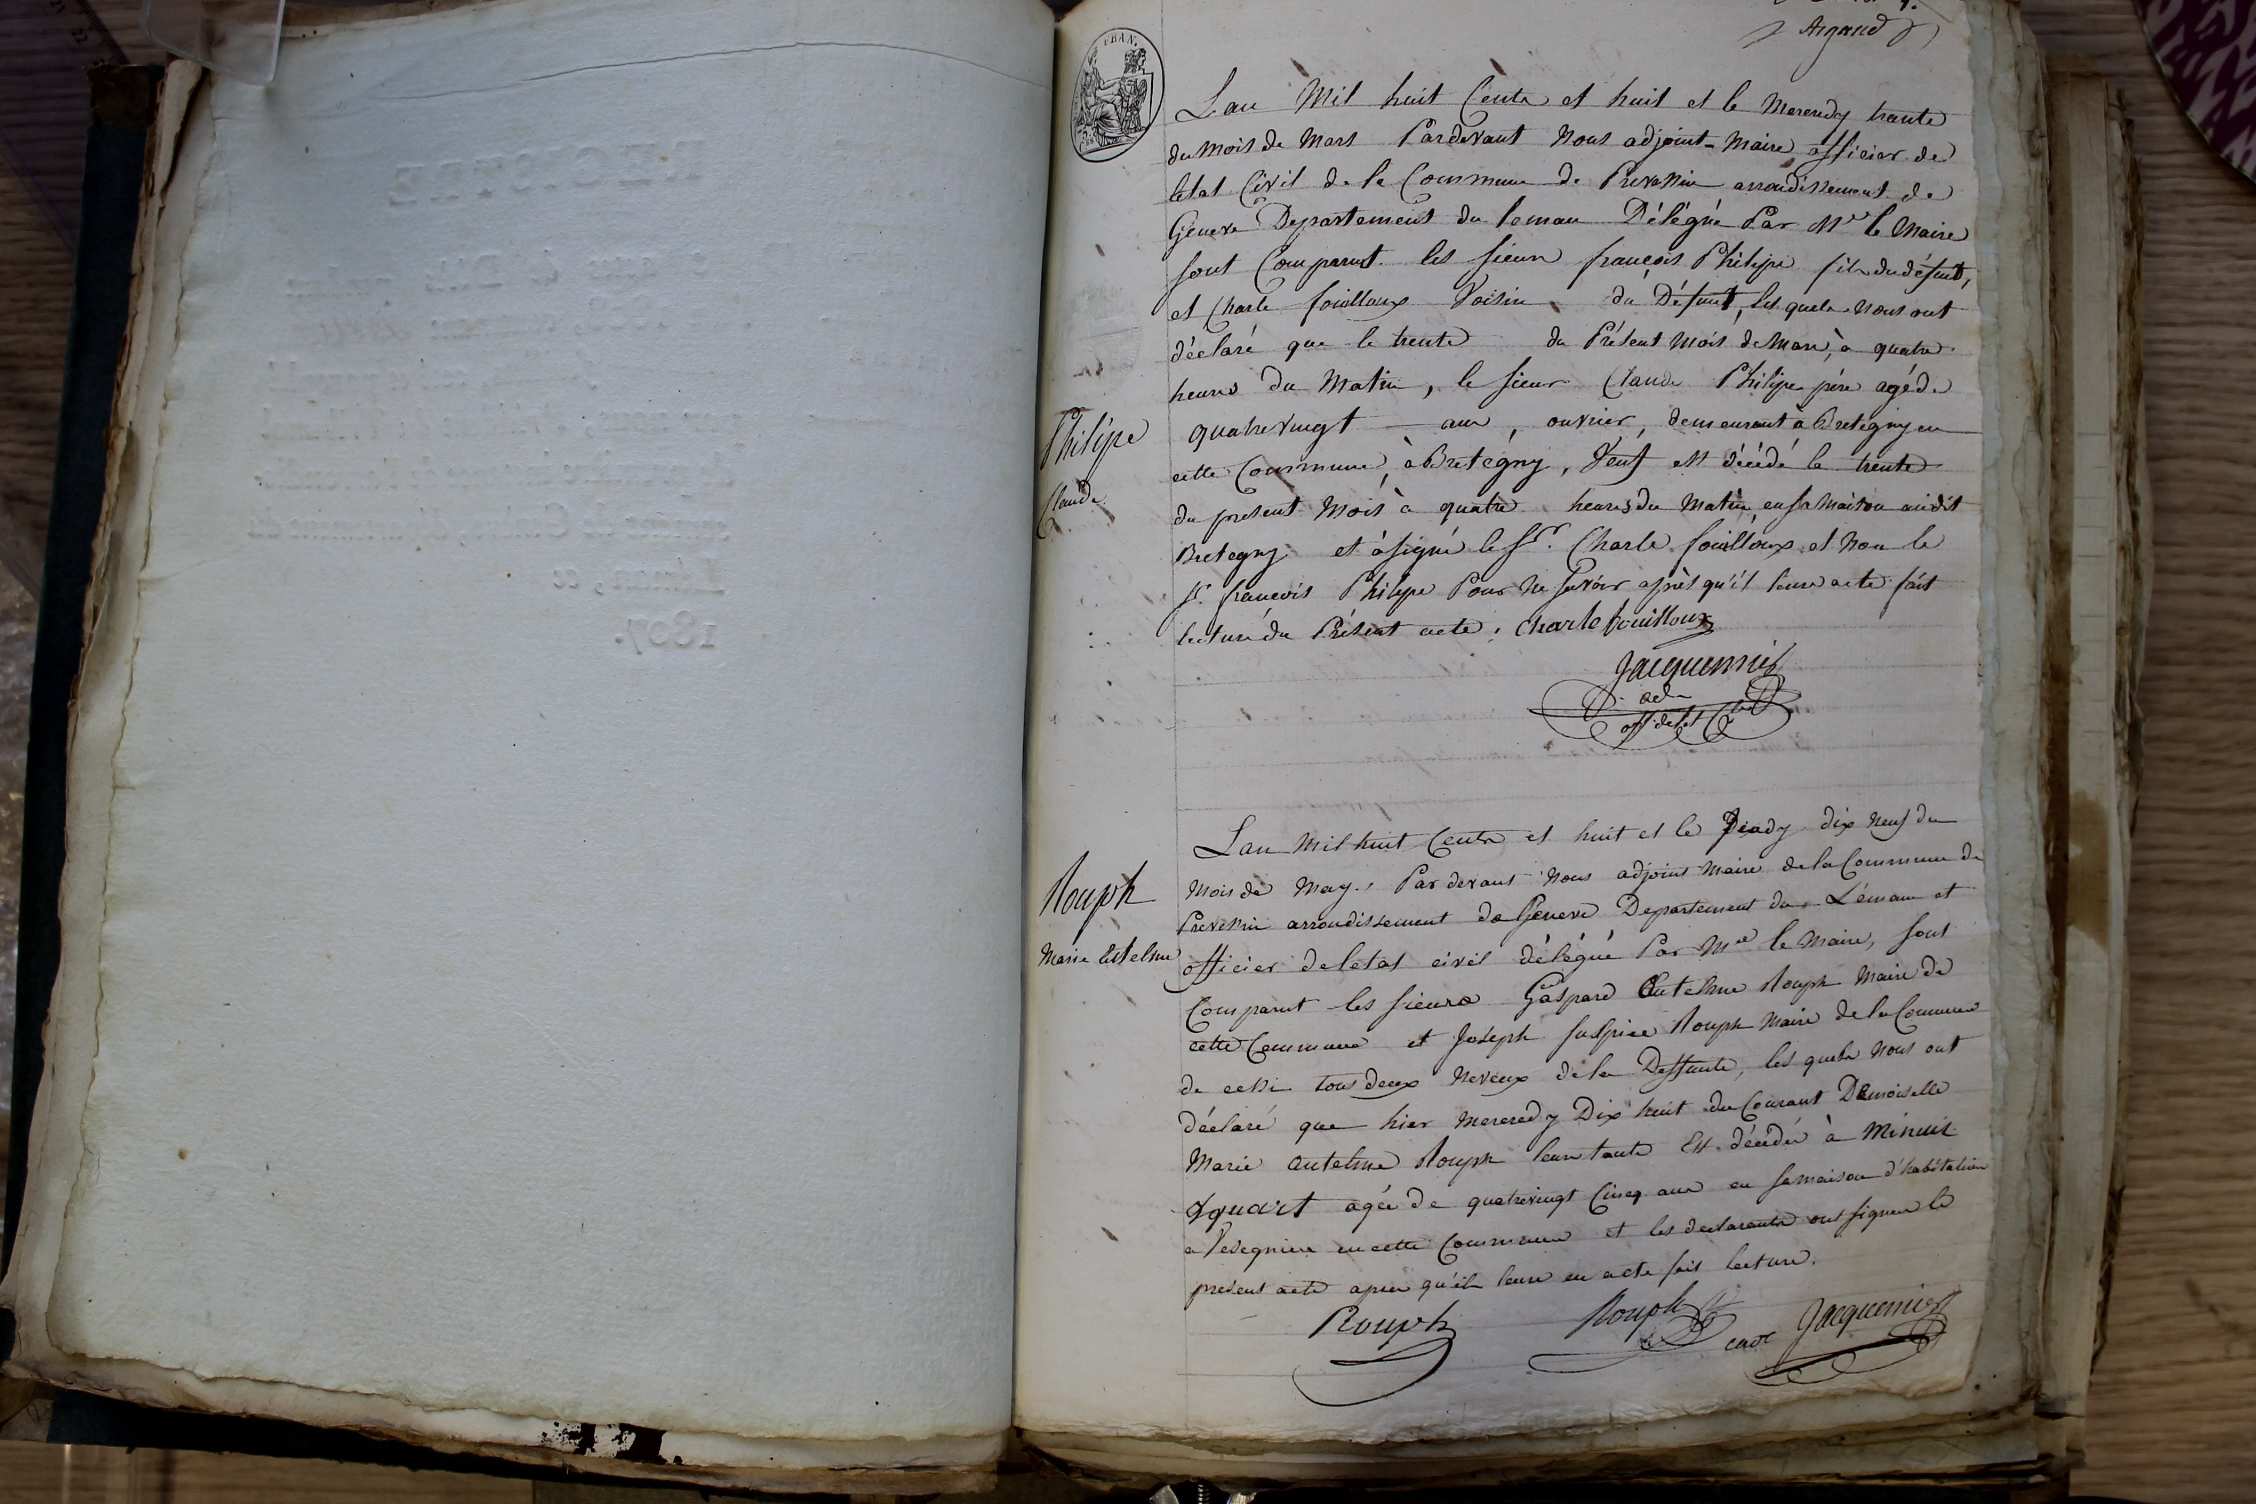 FRAN.
Argand
Lan Mil huit Cents et huit et le Mereredy trante
du mois de Mars Pardevant Nous adjoint-Maire officier de
letat Civil de la Commune de Prevessin arrondissement de
Geneve Departement du leman Délégué Par Mr le Maire
sont Comparut les sieurs françois Philipe fils du défunt,
et Charle fouilloux Voisin du Défunt, les quels nous ont
déclaré que le trente du Présent Mois de Mars, à quatre
heures du Matin, le sieur Claude Philipe père agé de
quatrevingt ans, ouvrier, demeurant à Bretegny en
cette Commune, à Bretégny, Veuf est décédé le trente
du présent Mois à quatre heures du Matin, en sa Maison audit
Bretegny et à signé le Sr. Charle fouilloux et Non le
Sr. françois Philipe Pour Ne savoir après qu'il leure acte fait
lecture du Présent acte. Charle fouilloux
Jacquemier
adn
off. de let Civil
Philipe
Claude
Lan Mil huit Cents et huit et le Jeudy dix Neuf du
Mois de May. Pardevant Nous adjoint Maire de la Commune de
Prevessin arrondissement de Geneve Departement du Léman et
officier de letat civil délégué Par Mr le Maire, sont
Comparut les sieurs Gaspard Antelme Rouph Maire de
cette Commune et Joseph Sulpice Rouph Maire de la Commune
de cessi tous deux Neveux de la Deffunte, les quels Nous ont
déclaré que hier Mereredy Dix huit du Courant Demoiselle
Marie Antelme Rouph leur tante Est décédée à Minuit
&quart agée de quatrevingt Cinq ans en sa maison d'habitation
a Vesegnin en cette Commune et les declarants ont signer le
présent acte après qu'il leure en acte fait lecture.
Rouph
Marie Antelme
Rouph
Rouph
Jacquemier
1807.